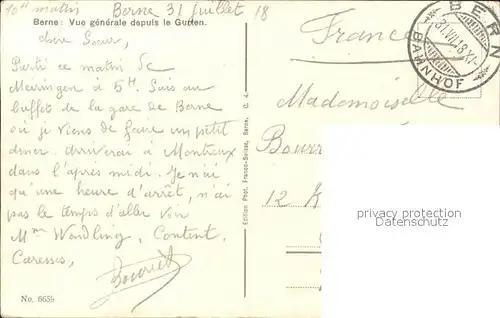 10h matin Berne 31 Juillet 18
Berne: Vue générale depuis le Gurten.
chère Soeur,
Parti ce matin de
Meiringen à 5H. Suis au
buffet de la gare de Berne
où je viens de faire un petit
diner. Arriverai à Montreux
dans l'après midi. Je n'ai
qu'une heure d'arrêt, n'ai
pas le temps d'aller voir
Mme Wandling. Content.
Caresses,
No. 6659
Edition Phot. Franco-Suisse, Berne.
France
BERN
31.VII.18.XI-
BAHNHOF
Mademoiselle
Bourr
12
privacy protection
watermark